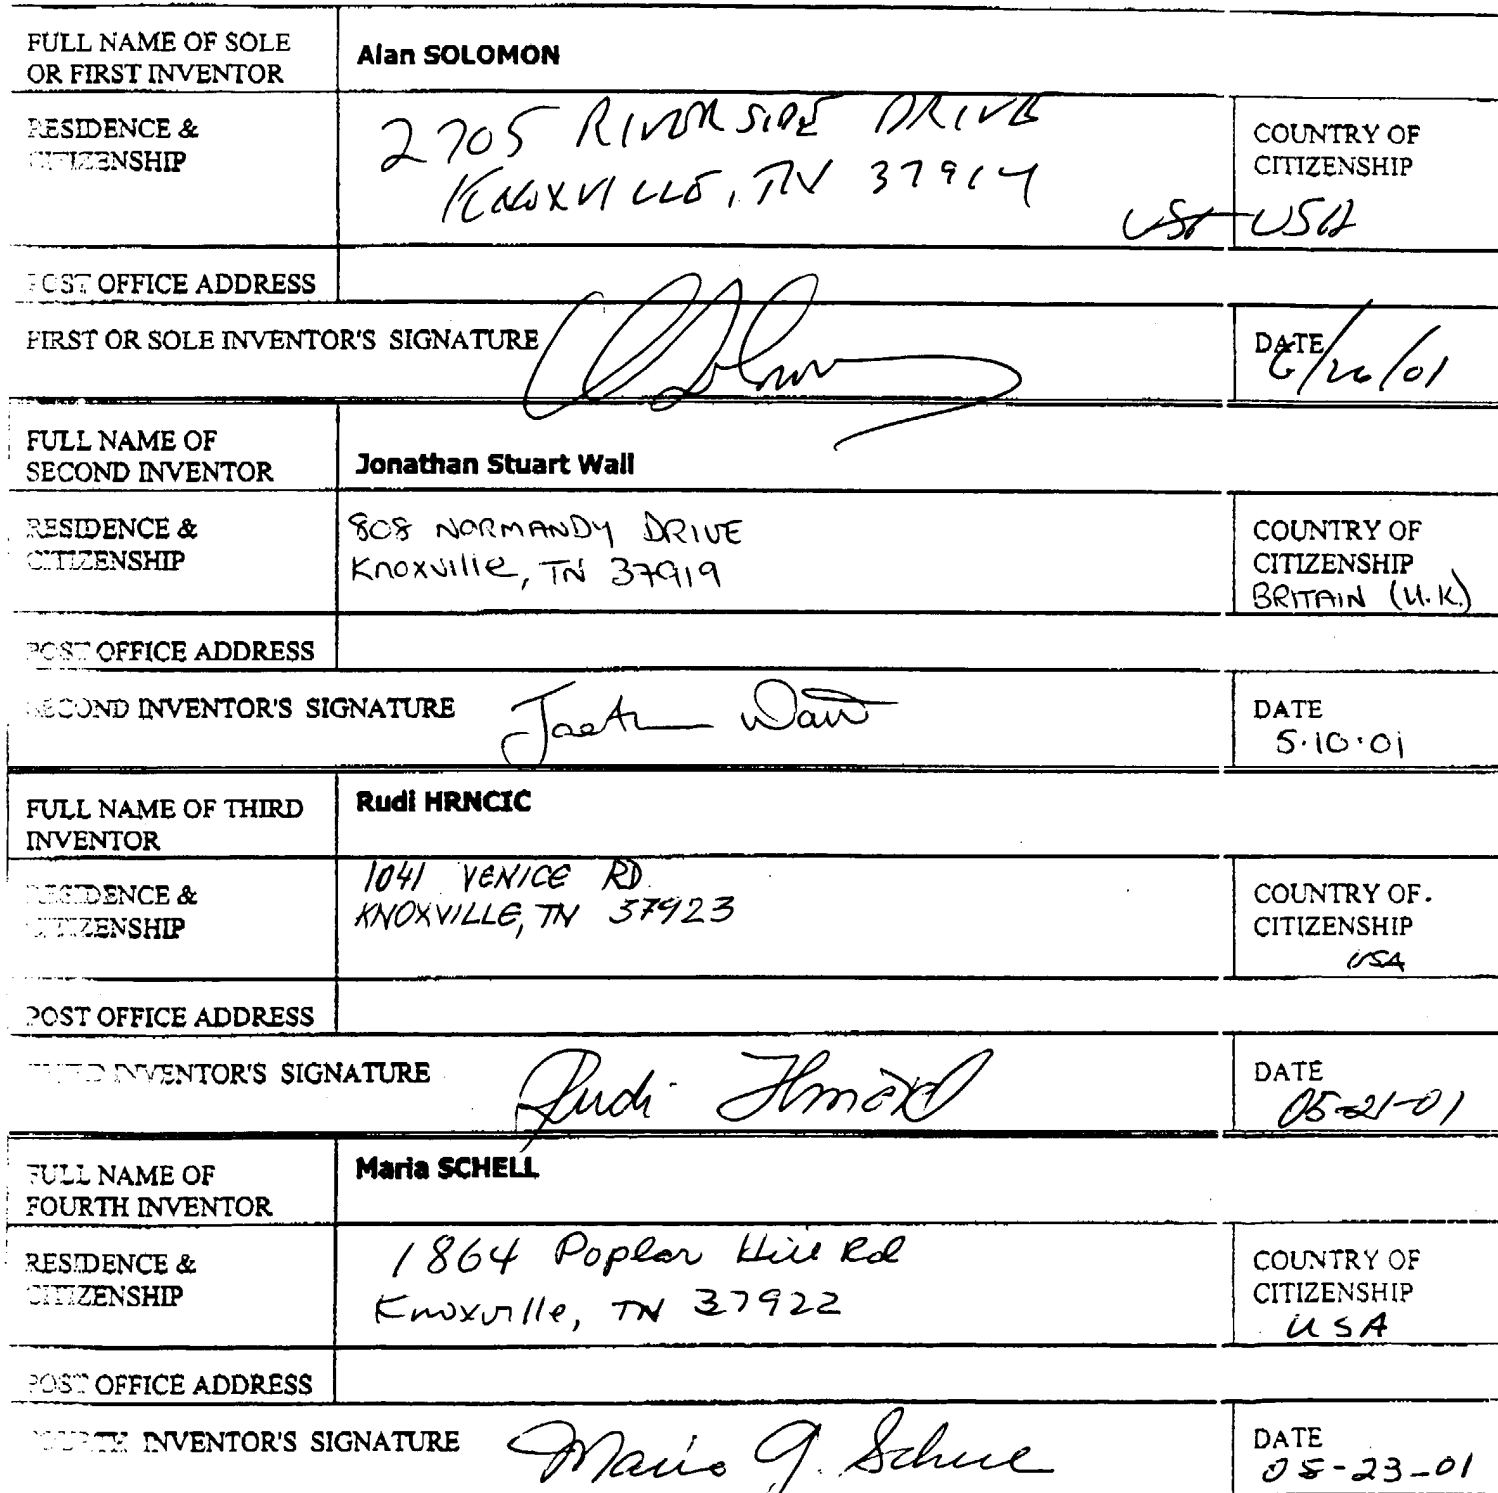 FULL NAME OF SOLE
OR FIRST INVENTOR
Alan SOLOMON
RESIDENCE &
CITIZENSHIP
2705 RIVERSIDE DRIVE
KNOXVILLE, TN 37914
COUNTRY OF
CITIZENSHIP
USA USA
POST OFFICE ADDRESS
FIRST OR SOLE INVENTOR'S SIGNATURE
DATE
6/26/01
FULL NAME OF
SECOND INVENTOR
Jonathan Stuart Wall
RESIDENCE &
CITIZENSHIP
808 NORMANDY DRIVE
Knoxville, TN 37919
COUNTRY OF
CITIZENSHIP
BRITAIN (U.K.)
POST OFFICE ADDRESS
SECOND INVENTOR'S SIGNATURE
DATE
5.10.01
FULL NAME OF THIRD
INVENTOR
Rudi HRNCIC
RESIDENCE &
CITIZENSHIP
1041 VENICE RD
KNOXVILLE, TN 37923
COUNTRY OF.
CITIZENSHIP
USA
POST OFFICE ADDRESS
THIRD INVENTOR'S SIGNATURE
Rudi Hrncic
DATE
05-21-01
FULL NAME OF
FOURTH INVENTOR
Maria SCHELL
RESIDENCE &
CITIZENSHIP
1864 Poplar Hill Rd
Knoxville, TN 37922
COUNTRY OF
CITIZENSHIP
USA
POST OFFICE ADDRESS
FOURTH INVENTOR'S SIGNATURE
Maria J. Schell
DATE
05-23-01